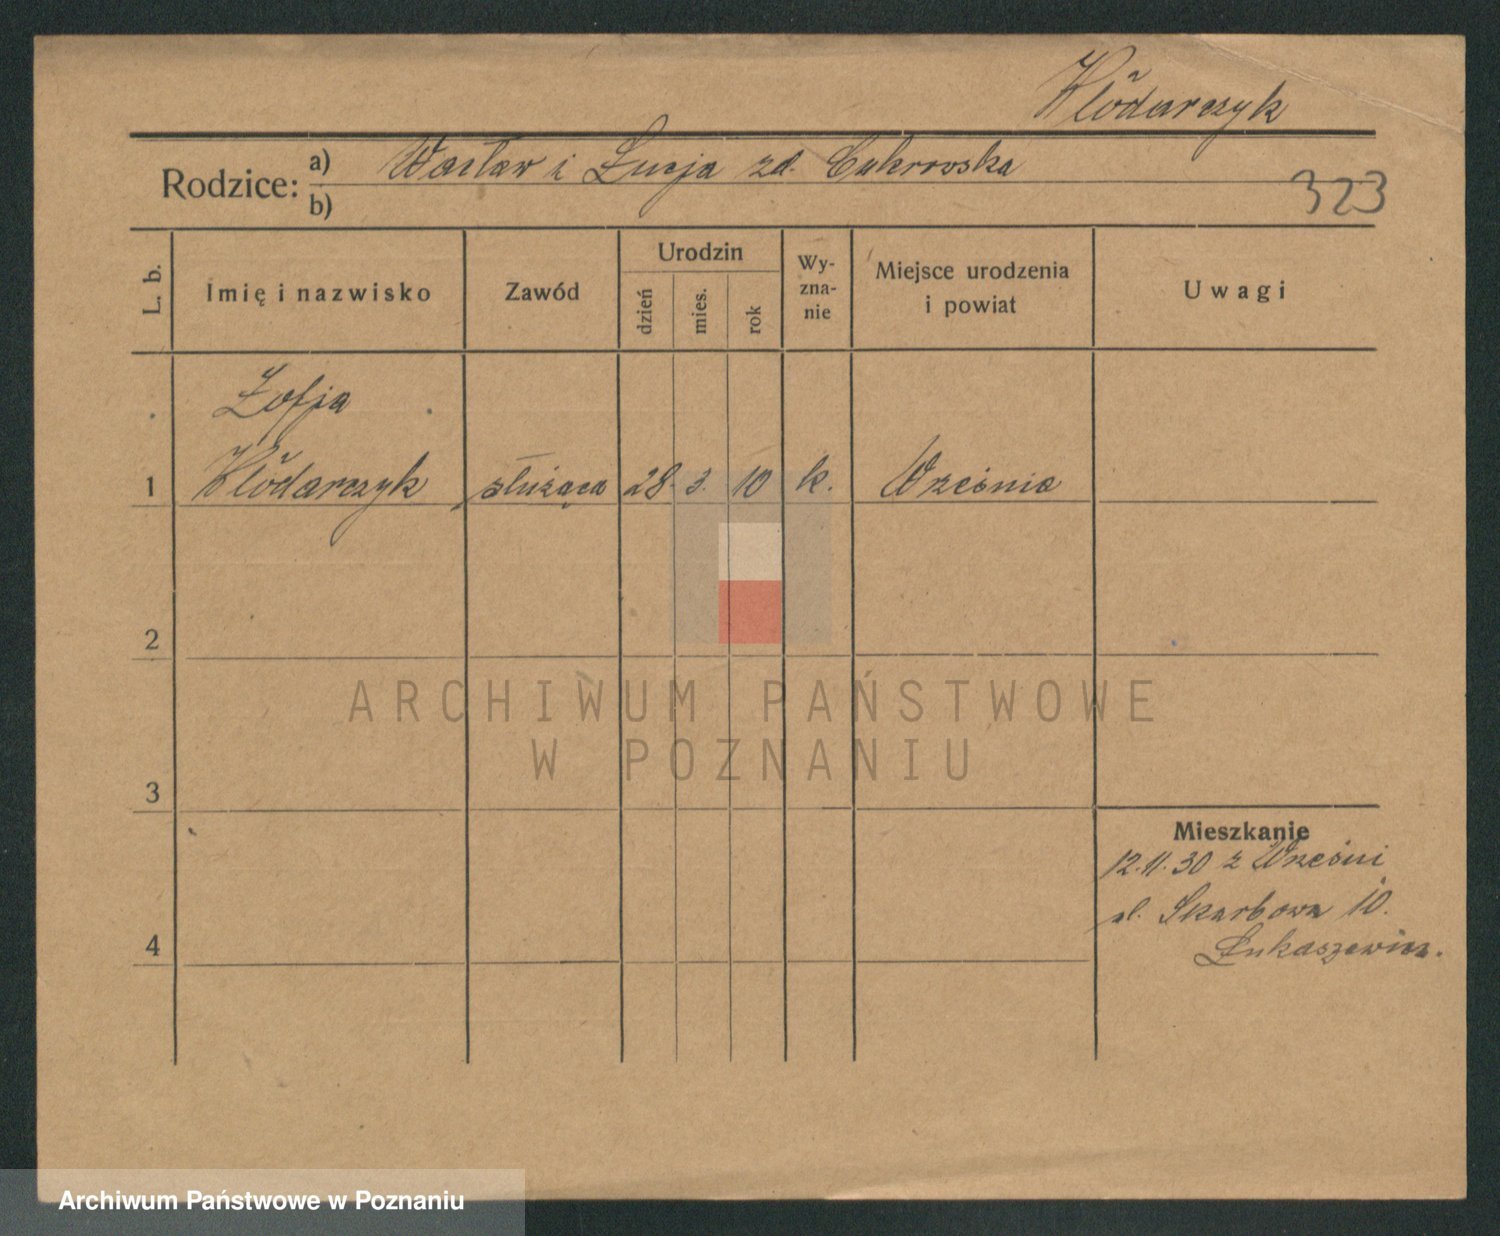 Włódarczyk
Rodzice: a) Wacław i Łucja zd. Cukrowska
b)
323
L. b.
Imię i nazwisko
Zawód
Urodzin
dzień
mies.
rok
Wy-
zna-
nie
Miejsce urodzenia
i powiat
Uwagi
Zofja
1 Włódarczyk służąca 28. 3. 10 k. Września
2
3
4
Mieszkanie
12.11.30 z Wrześni
ul. Skarbowa 10.
Łukaszewicz.
ARCHIWUM PAŃSTWOWE
W POZNANIU
Archiwum Państwowe w Poznaniu